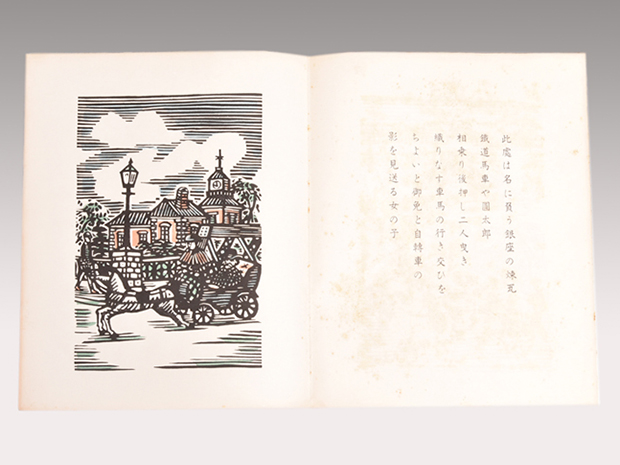 此處は名に負う銀座の煉瓦
鐡道馬車や圓太郎
相乗り後押し二人曳き
織りなす車馬の行き交ひを
ちょいと御免と自轉車の
影を見送る女の子